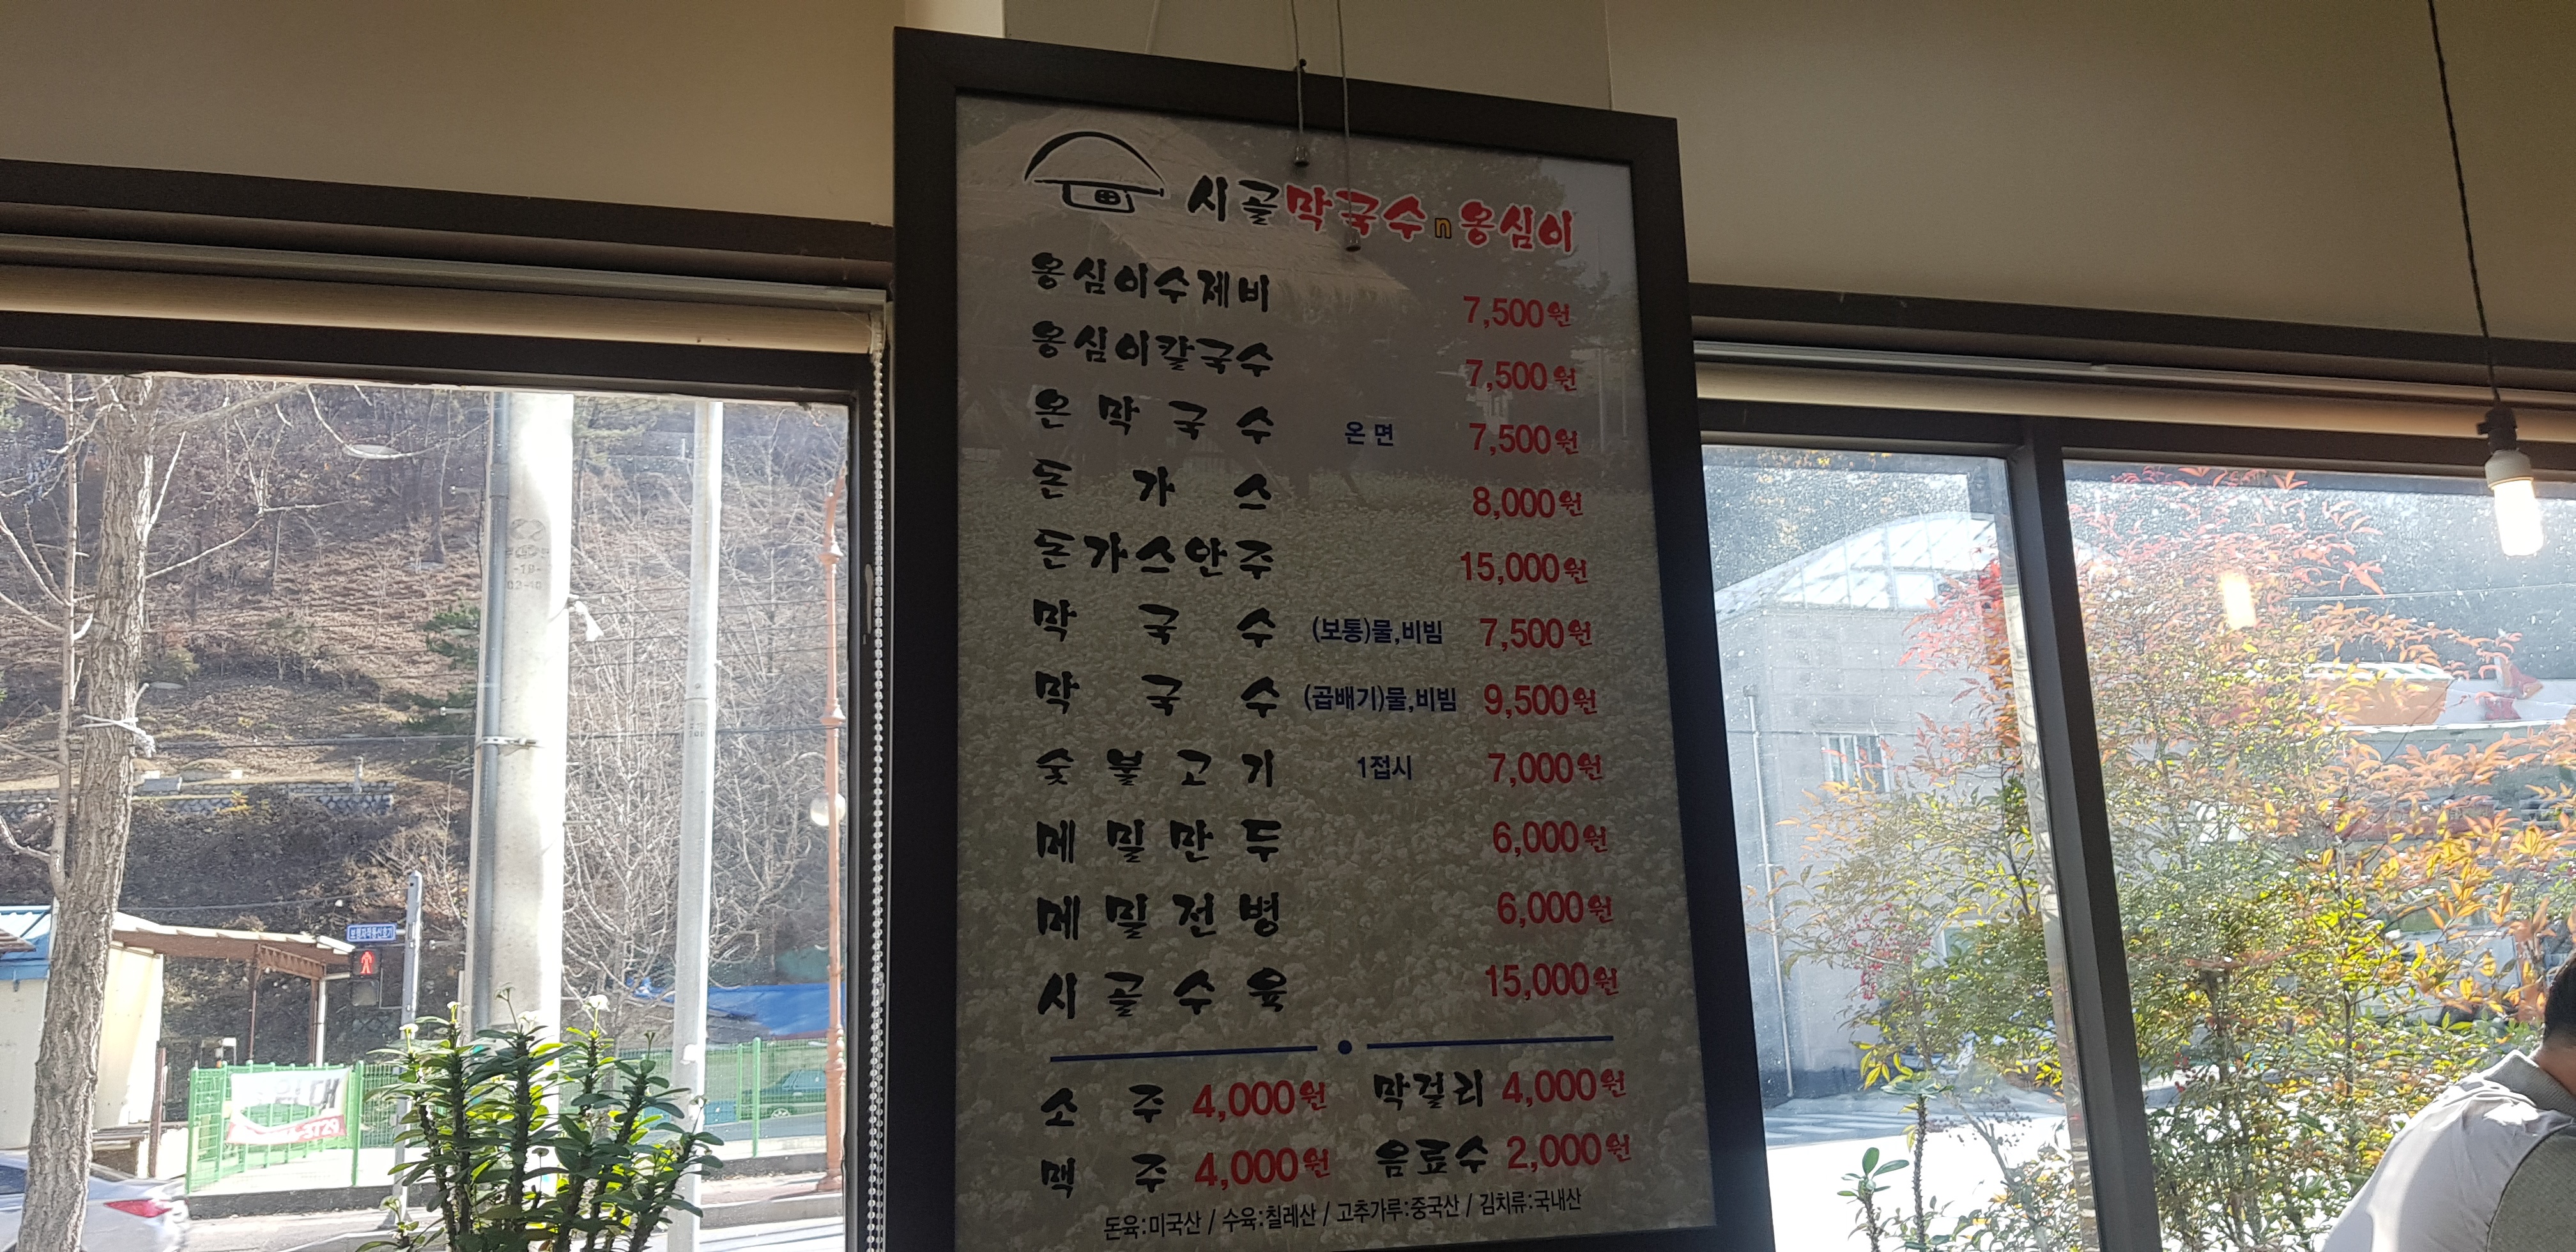 시골막국수n옹심이
옹심이수제비 7,500원
옹심이칼국수 7,500원
온막국수 온면 7,500원
돈가스 8,000원
돈가스안주 15,000원
막국수 (보통)물,비빔 7,500원
막국수 (곱배기)물,비빔 9,500원
숯불고기 1접시 7,000원
메밀만두 6,000원
메밀전병 6,000원
시골수육 15,000원
소주 4,000원 막걸리 4,000원
맥주 4,000원 음료수 2,000원
돈육:미국산 / 수육:칠레산 / 고추가루:중국산 / 김치류:국내산
보행자작동신호기